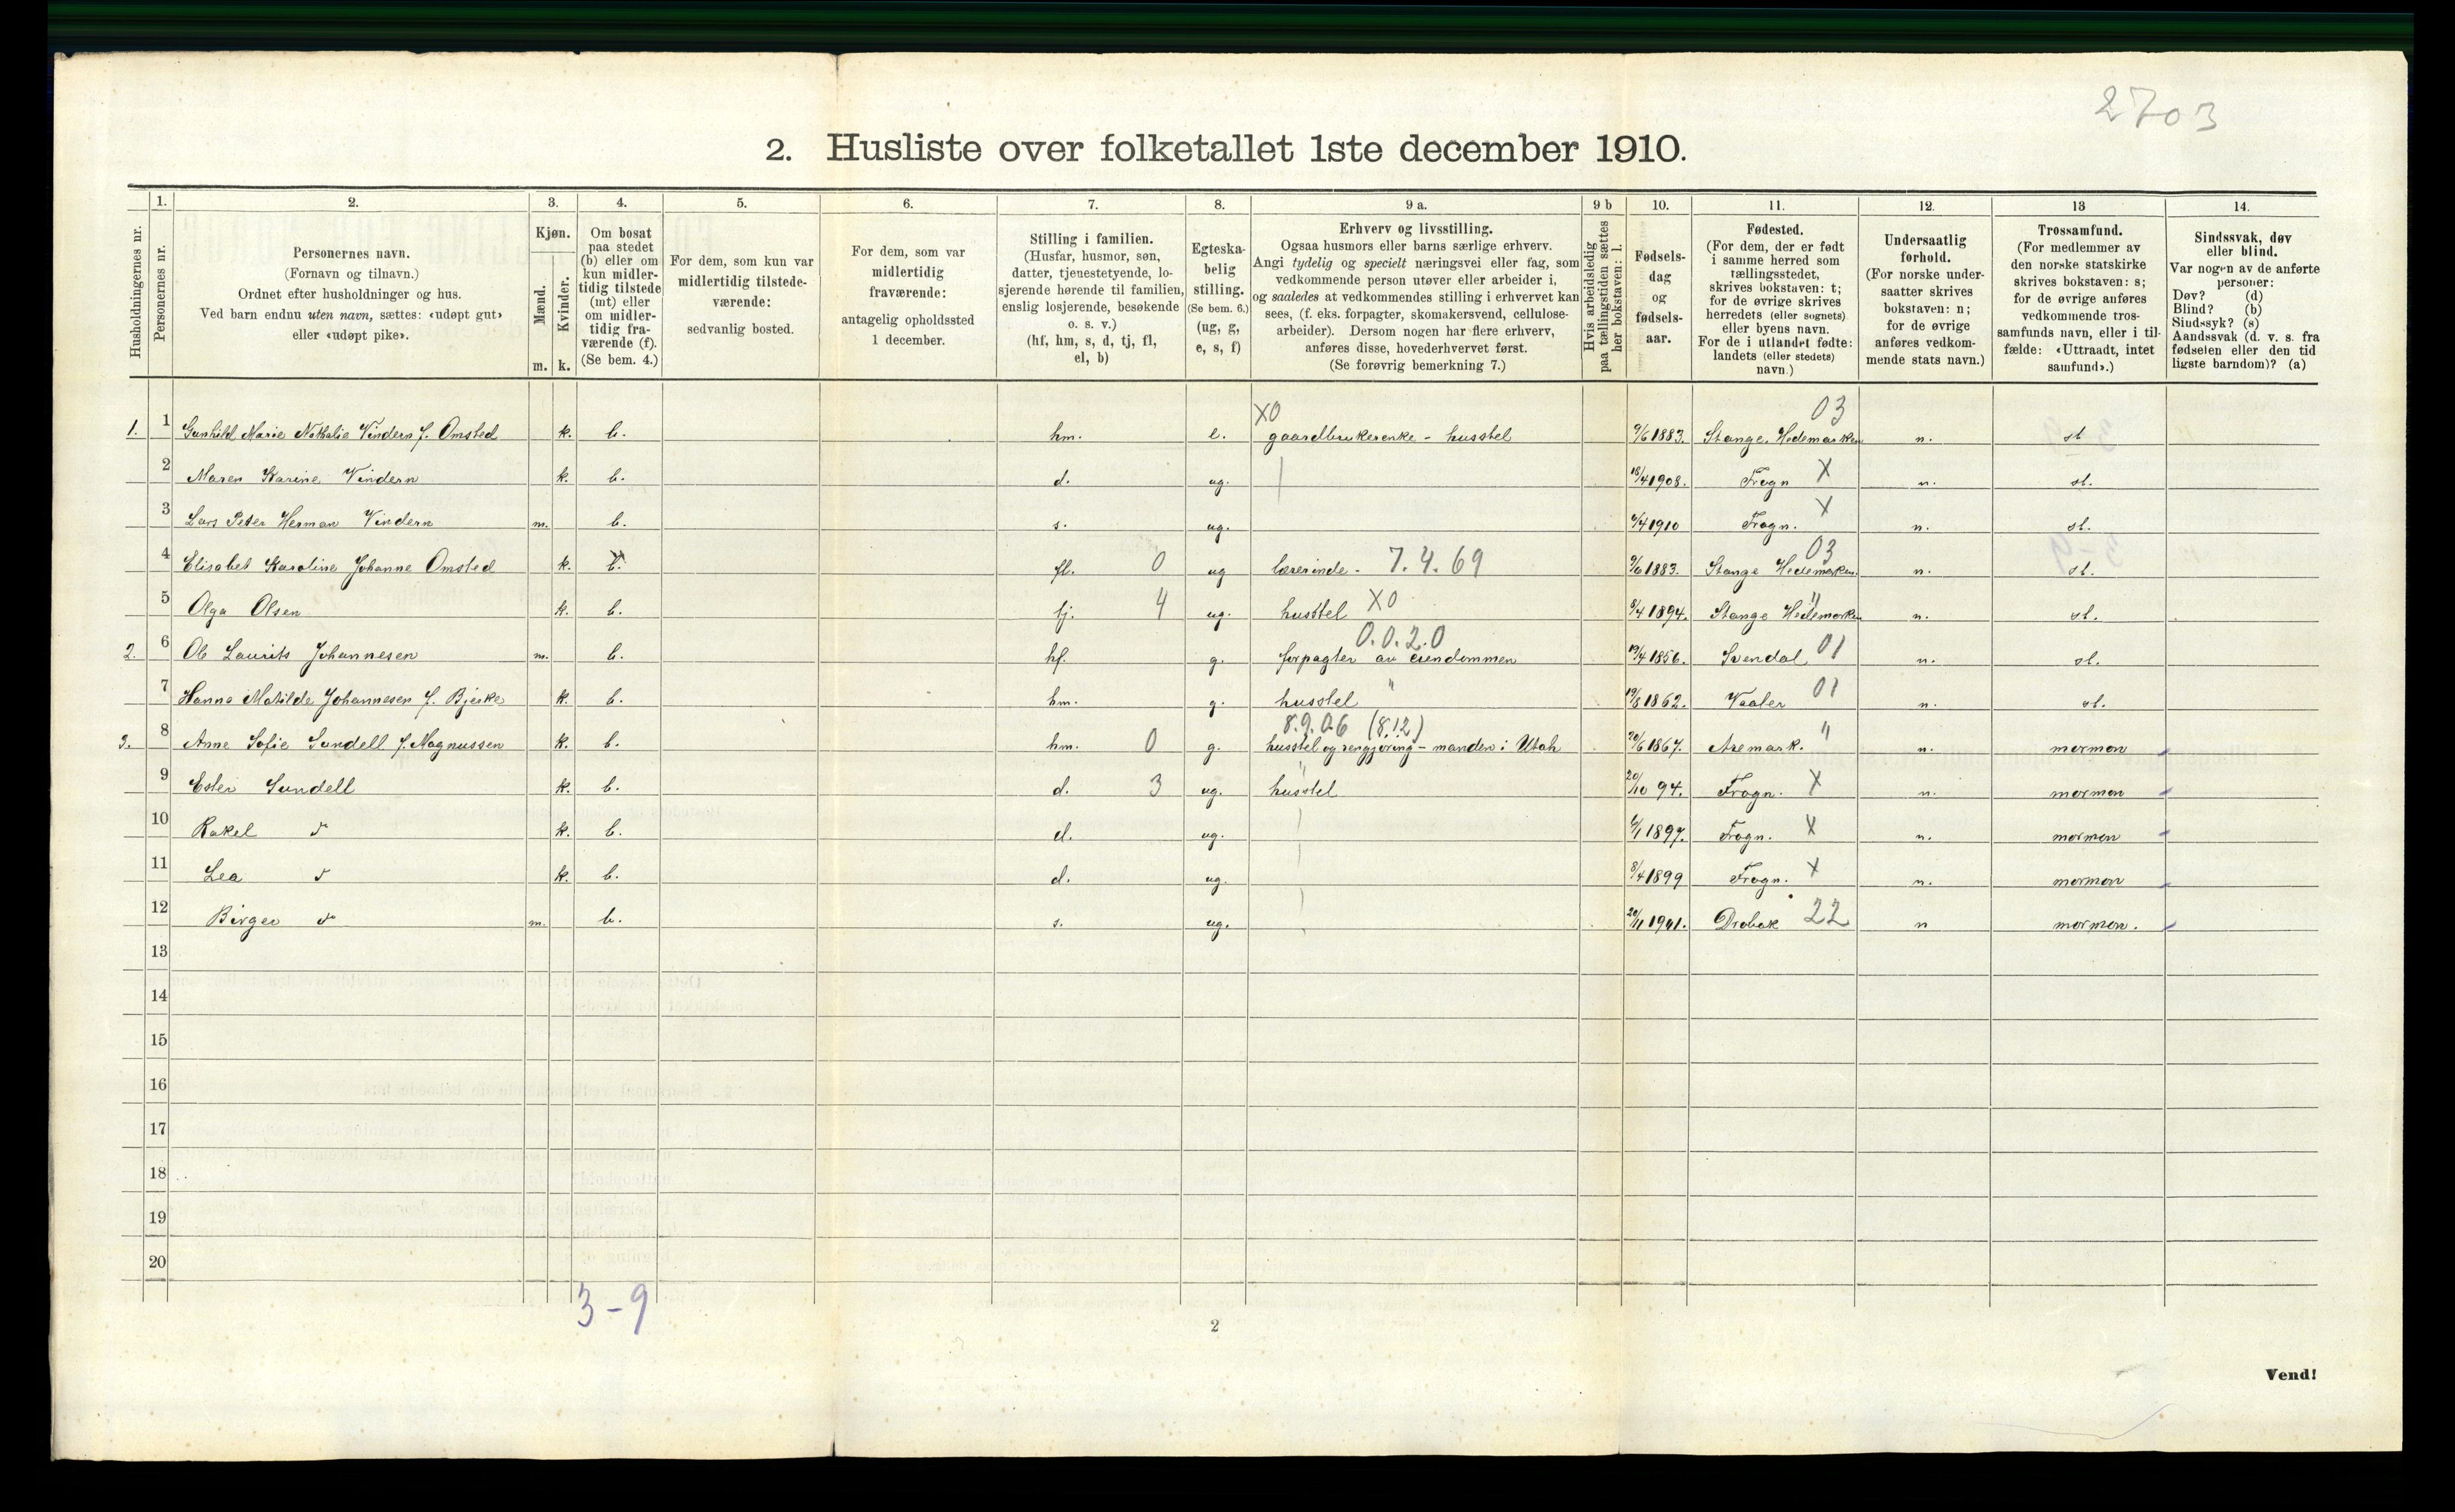 2703
2. Husliste over folketallet 1ste december 1910.
1. 2. 3. 4. 5. 6. 7. 8. 9 a. 9 b 10. 11. 12. 13 14.
Husholdningernes nr.
Personernes nr.
Personernes navn.
(Fornavn og tilnavn.)
Ordnet efter husholdninger og hus.
Ved barn endnu uten navn, sættes: «udøpt gut»
eller «udøpt pike».
Kjøn.
Mænd.
Kvinder.
m. k.
Om bosat
paa stedet
(b) eller om
kun midler-
tidig tilstede
(mt) eller
om midler-
tidig fra-
værende (f).
(Se bem. 4.)
For dem, som kun var
midlertidig tilstede-
værende:
sedvanlig bosted.
For dem, som var
midlertidig
fraværende:
antagelig opholdssted
1 december.
Stilling i familien.
(Husfar, husmor, søn,
datter, tjenestetyende, lo-
sjerende hørende til familien,
enslig losjerende, besøkende
o. s. v.)
(hf, hm, s, d, tj, fl,
el, b)
Egteska-
belig
stilling.
(Se bem. 6.)
(ug, g,
e, s, f)
Erhverv og livsstilling.
Ogsaa husmors eller barns særlige erhverv.
Angi tydelig og specielt næringsvei eller fag, som
vedkommende person utøver eller arbeider i,
og saaledes at vedkommendes stilling i erhvervet kan
sees, (f. eks. forpagter, skomakersvend, cellulose-
arbeider). Dersom nogen har flere erhverv,
anføres disse, hovederhvervet først.
(Se forøvrig bemerkning 7.)
Hvis arbeidsledig
paa tællingstiden sættes
her bokstaven: l.
Fødsels-
dag
og
fødsels-
aar.
Fødested.
(For dem, der er født
i samme herred som
tællingsstedet,
skrives bokstaven: t;
for de øvrige skrives
herredets (eller sognets)
eller byens navn.
For de i utlandet fødte:
landets (eller stedets)
navn.)
Undersaatlig
forhold.
(For norske under-
saatter skrives
bokstaven: n;
for de øvrige
anføres vedkom-
mende stats navn.)
Trossamfund.
(For medlemmer av
den norske statskirke
skrives bokstaven: s;
for de øvrige anføres
vedkommende tros-
samfunds navn, eller i til-
fælde: «Uttraadt, intet
samfund».)
Sindssvak, døv
eller blind.
Var nogen av de anførte
personer:
Døv? (d)
Blind? (b)
Sindssyk? (s)
Aandssvak (d. v. s. fra
fødselen eller den tid
ligste barndom)? (a)
X0 03
1. 1 Gunhild Marie Nathalie Vindern f. Omsted k. b. hm. e. gaardbrukerenke - husstel 9/6 1883. Stange, Hedemarken n. st
2 Maren Karine Vindern k. b. d. ug. 18/4 1908. Frogn X n. st.
3 Lars Peter Herman Vindern m. b. s. ug. 6/4 1910 Frogn. X n. st.
4 Elisabet Karoline Johanne Omsted k. b. fl. 0 ug lærerinde - 7.4.69 9/6 1883. Stange Hedemarken. 03 n. st.
5 Olga Olsen k. b. tj. 4 ug. husstel X0 8/4 1894. Stange Hedemarken " n. st.
0.0.2.0
2. 6 Ole Laurits Johannesen m. b. hf. g. forpagter av eiendommen 19/4 1856. Svendal 01 n. st.
7 Hanna Matilde Johannesen f. Bjerke k. b. hm. g. husstel " 19/8 1862. Vaaler 01 n. st.
8.9.06 (8.12)
3. 8 Anne Sofie Sundell f. Magnussen k. b. hm. 0 g. husstel og rengjøring - manden i Utah 20/6 1867. Aremark. " n. mormon
9 Ester Sundell k. b. d. 3 ug. husstel " 20/10 94. Frogn. X n. mormon
10 Rakel d k. b. d. ug. 6/1 1897. Frogn. X n. mormon
11 Lea d k. b. d. ug. 8/4 1899 Frogn. X n. mormon
12 Birger do m. b. s. ug. 20/11 1901. Drøbak 22 n mormon.
13
14
15
16
17
18
19
20
3-9
2
Vend!